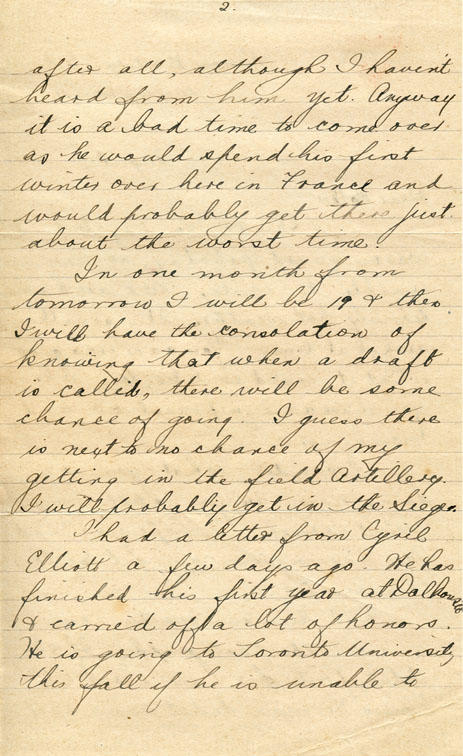 2.
after all, although I haven't
heard from him yet. Anyway
it is a bad time to come over
as he would spend his first
winter over here in France and
would probably get there just
about the worst time.
In one month from
tomorrow I will be 19 & then
I will have the consolation of
knowing that when a draft
is called, there will be some
chance of going. I guess there
is next to no chance of my
getting in the field Artillery.
I will probably get in the Siege.
I had a letter from Cyril
Elliott a few days ago. He has
finished his first year at Dalhousie
& carried off a lot of honors.
He is going to Toronto University
this fall if he is unable to